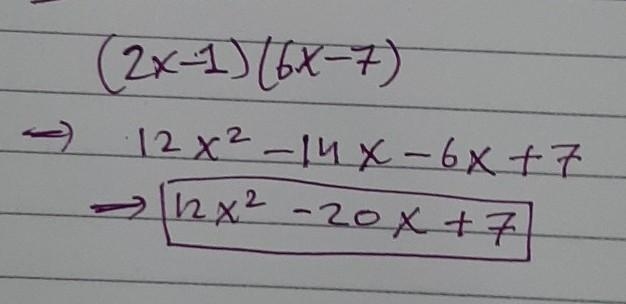 (2x-1)(6x-7)
→ 12x² -14x - 6x + 7
→ 12x² - 20x + 7